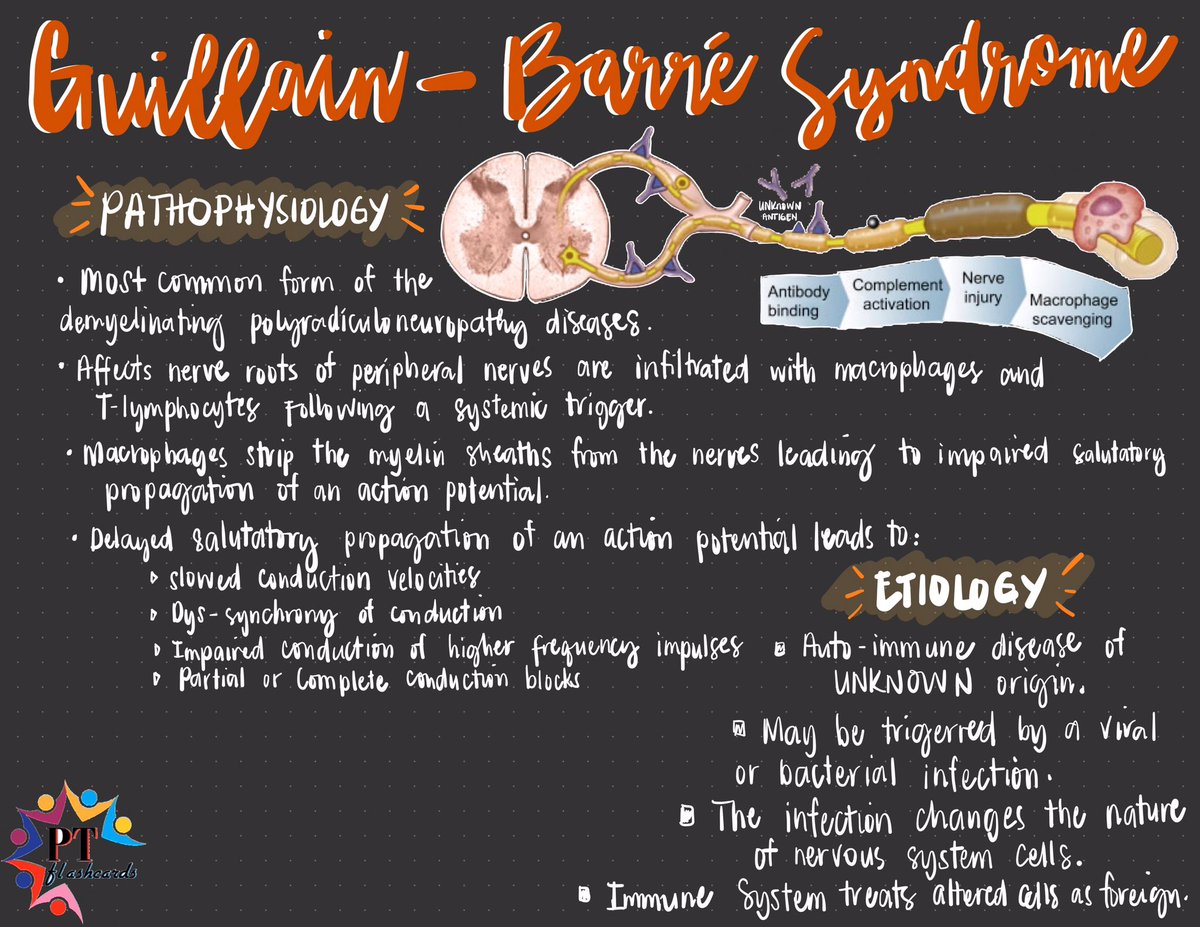 Guillain - Barré Syndrome
PATHOPHYSIOLOGY
UNKNOWN
ANTIGEN
Antibody
binding
Complement
activation
Nerve
injury
Macrophage
scavenging
• Most common form of the
demyelinating polyradiculoneuropathy diseases.
• Affects nerve roots of peripheral nerves are infiltrated with macrophages and
T-lymphocytes following a systemic trigger.
• Macrophages strip the myelin sheaths from the nerves leading to impaired salutatory
propagation of an action potential.
• Delayed salutatory propagation of an action potential leads to:
▹ slowed conduction velocities
▹ Dys-synchrony of conduction
▹ Impaired conduction of higher frequency impulses
▹ Partial or complete conduction blocks
ETIOLOGY
Auto-immune disease of
UNKNOWN origin.
May be trigerred by a viral
or bacterial infection.
The infection changes the nature
of nervous system cells.
Immune System treats altered cells as foreign.
PT
flashcards